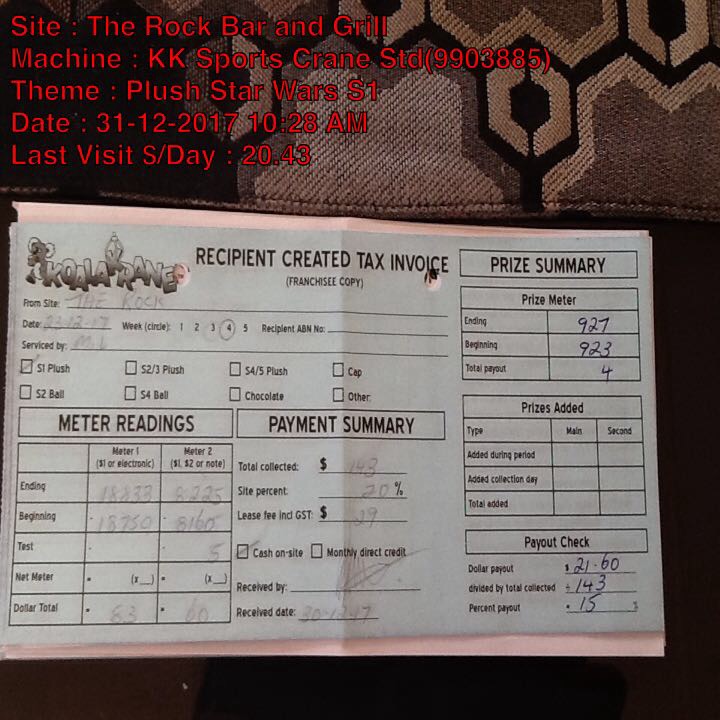 Site : The Rock Bar and Grill
Machine : KK Sports Crane Std(9903885)
Theme : Plush Star Wars S1
Date : 31-12-2017 10:28 AM
Last Visit S/Day : 20.43
KOALA KRANE
RECIPIENT CREATED TAX INVOICE
(FRANCHISEE COPY)
From Site: THE ROCK
Date: 23-12-17 Week (circle): 1 2 3 4 5 Recipient ABN No:
Serviced by:
S1 Plush S2/3 Plush S4/5 Plush Cap
S2 Ball S4 Ball Chocolate Other:
METER READINGS
Meter 1 Meter 2
($1 or electronic) ($1, $2 or note)
Ending 18833 8225
Beginning - 18750 - 8160
Test - - 5
Net Meter = (x__) = (x__)
Dollar Total = 83 = 60
PAYMENT SUMMARY
Total collected: $ 143
Site percent: 20 %
Lease fee incl GST: $ 29
Cash on-site Monthly direct credit
Received by:
Received date: 30-12-17
PRIZE SUMMARY
Prize Meter
Ending 927
Beginning 923
Total payout 4
Prizes Added
Type Main Second
Added during period
Added collection day
Total added
Payout Check
Dollar payout $ 21.60
divided by total collected ÷ 143
Percent payout = 15 %